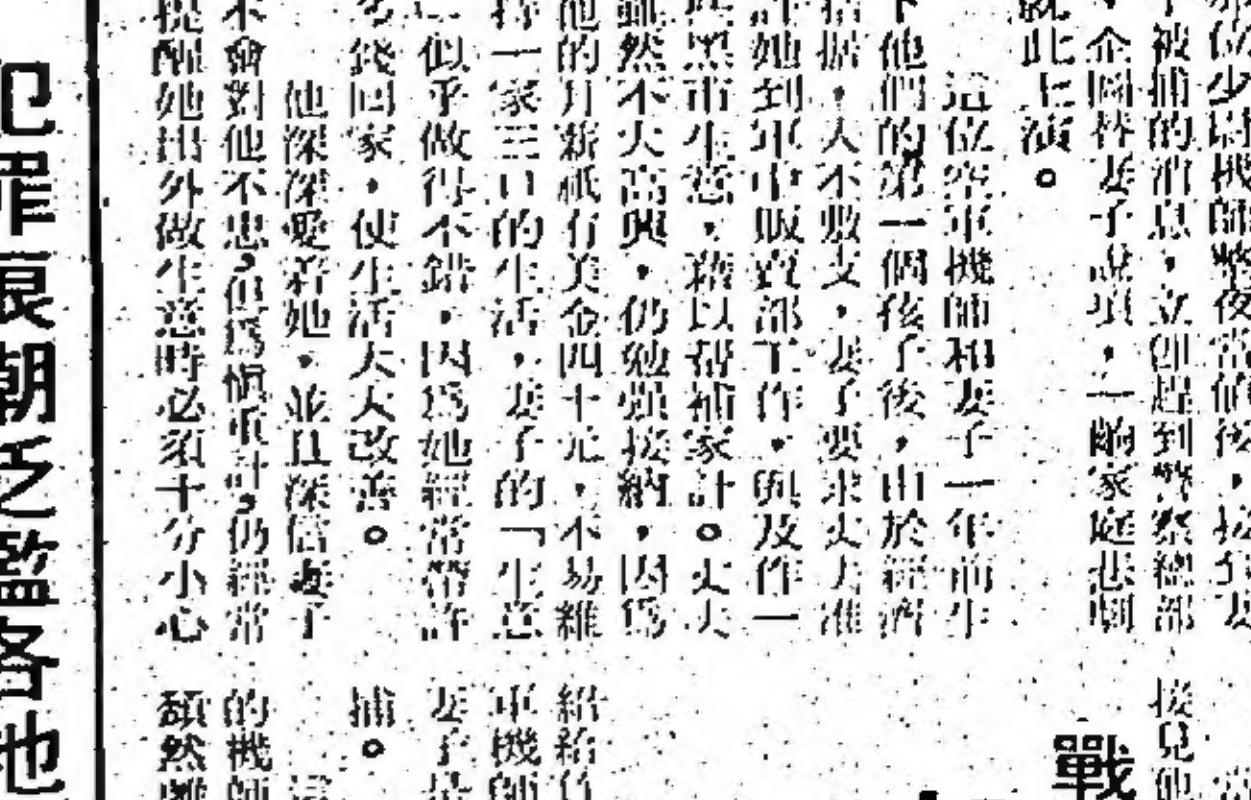 那位少尉機師整夜當值後，
被捕的消息，立卽趕到警察總部
，企圖替妻子說項，一齣家庭悲劇
就此上演。
這位空軍機師和妻子一年前生
下他們的第一個孩子後，由於經濟
拮据，入不敷支，妻子要求丈夫准
許她到軍中販賣部工作，與及作一
些黑市生意，藉以帮補家計。丈夫
雖然不大高興，仍勉强接納，因爲
他的月薪祇有美金四十元，不易維
持一家三口的生活，妻子的「生意
」似乎做得不錯，因爲她經常帶許
多錢回家，使生活大大改善。
他深深愛着她，並且深信妻子
不會對他不忠，但爲愼重計，仍經常
提醒她出外做生意時必須十分小心
戰
接見他
紹給
軍機師
妻子是
捕。
的機師
頹然離
犯罪浪潮乏監容地